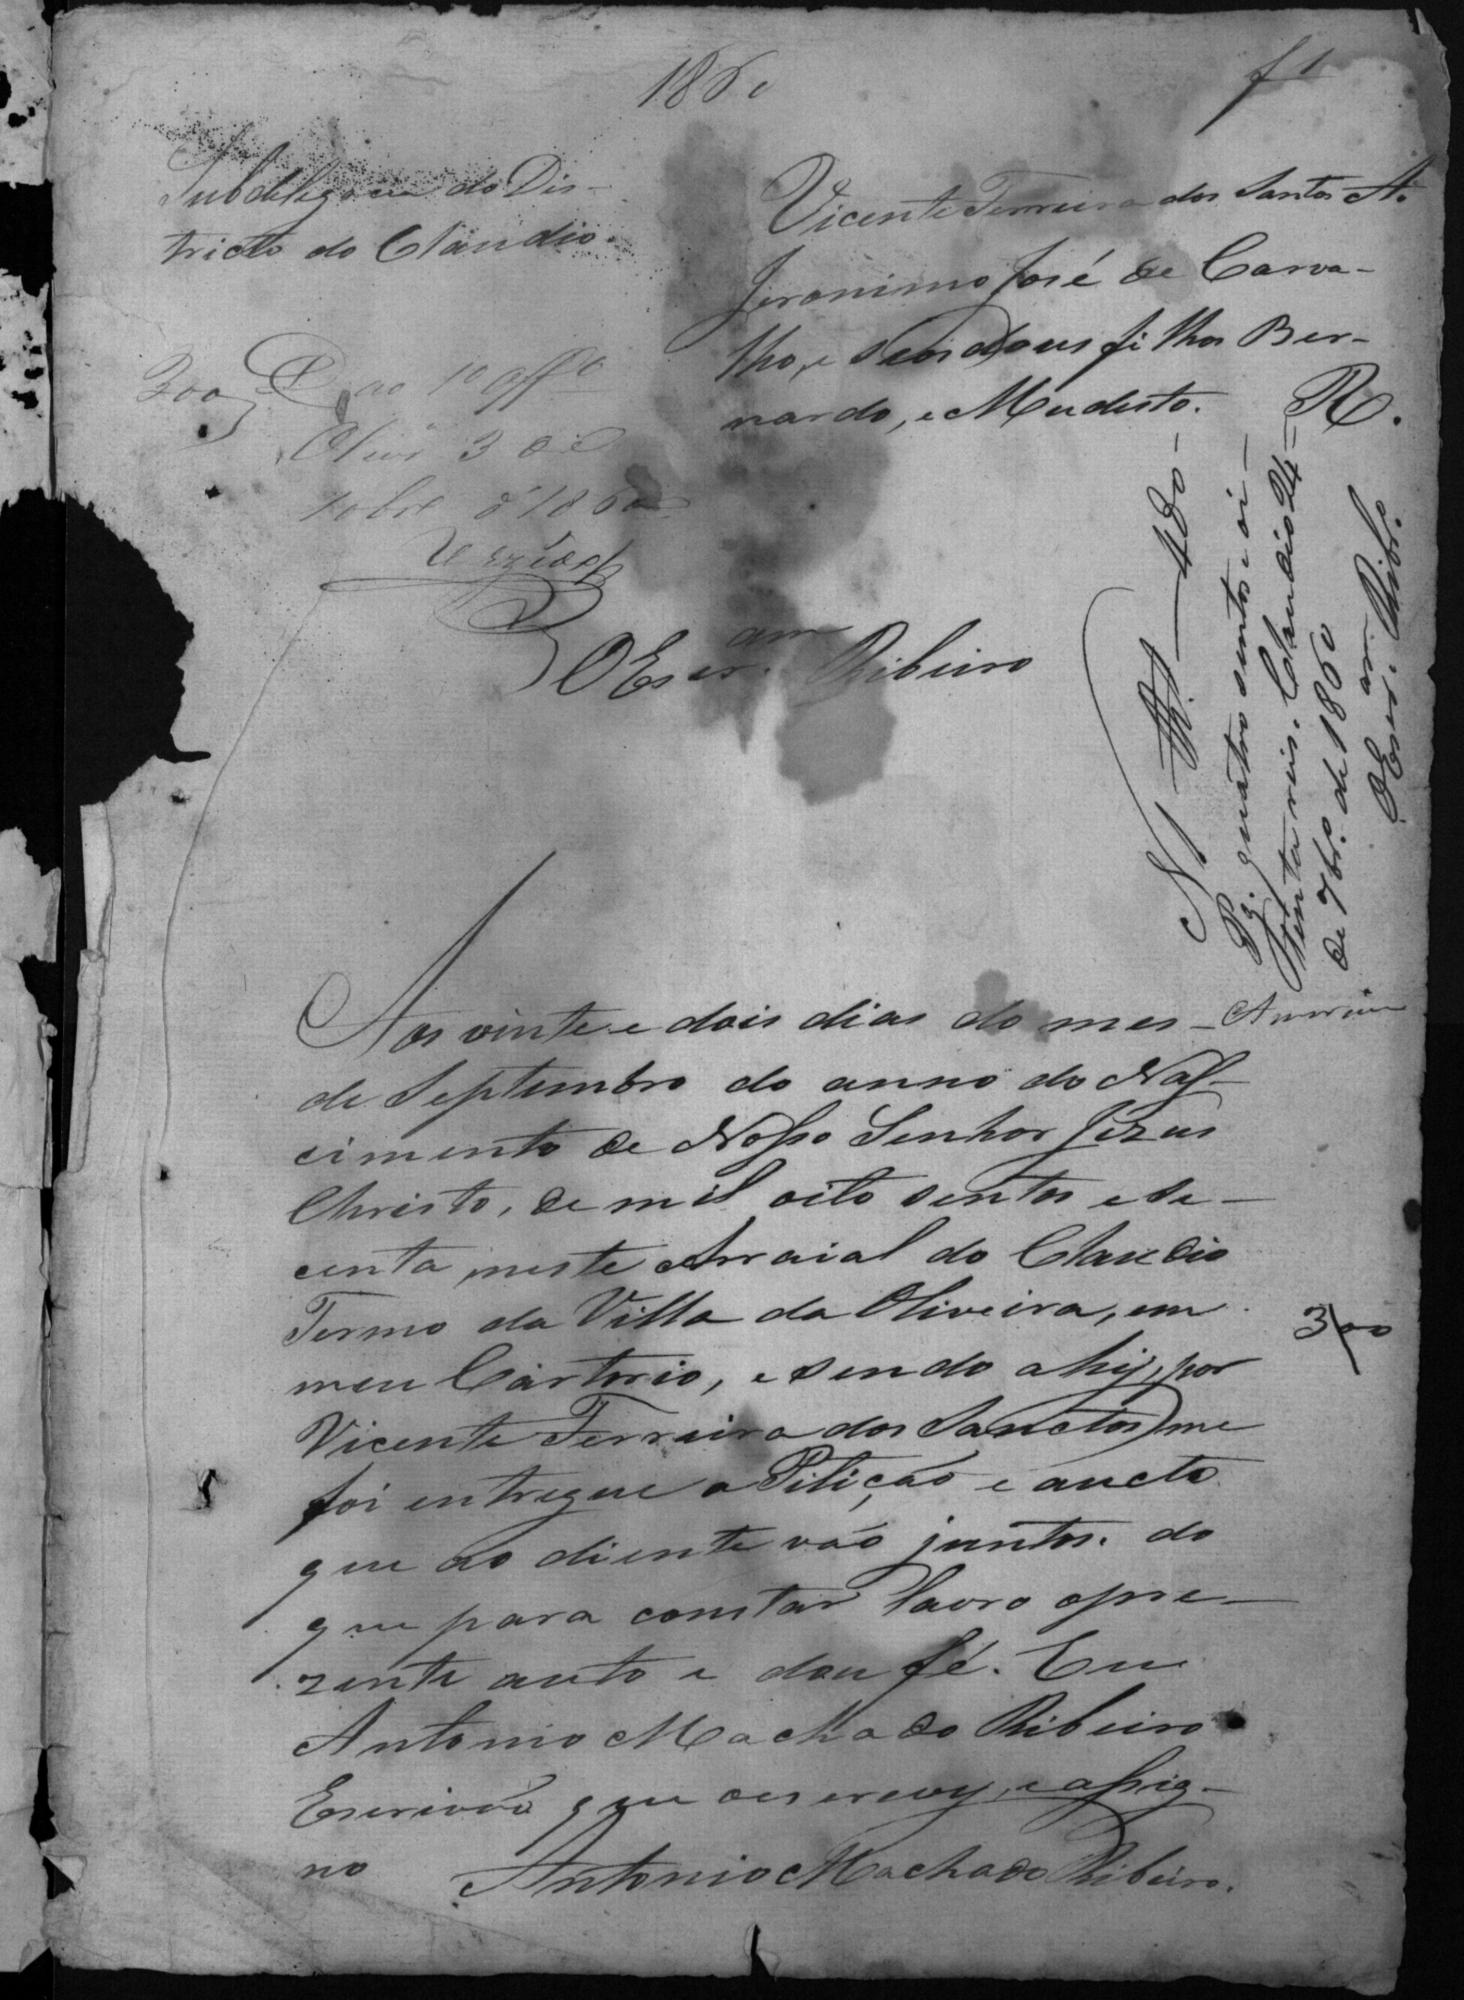 1860
f 1
Subdelegacia do Dis-
tricto do Claudio.
Vicente Ferreira dos Santos A.
Jeronimo José de Carva-
lho, e seos dous filhos Ber-
nardo, e Mudesto.
R.
300
D. ao 1º offº
Olivrª 3 de
10brº d' 1860
O Escr.am Ribeiro
N 1 480
Pg. quatro sentos e oi-
tenta reis. Claudio 24
de 7brº. de 1860
O Escr.am Ribrº.
Aos vinte e dois dias do mes
de Septembro do anno do Nas-
cimento de Nosso Senhor Jezus
Christo, de mil oito sentos e se-
centa, neste Arraial do Claudio
Termo da Villa da Oliveira, em
meu Cartorio, e sendo ahy, por
Vicente Ferreira dos Sanctos me
foi entregue a Pitição e aucto
que ao diente vão juntos. do
que para constar lavro o pre-
zente auto e dou fé. Eu
Antonio Machado Ribeiro
Escrivão que o escrevy, e assig-
no Antonio Machado Ribeiro.
300